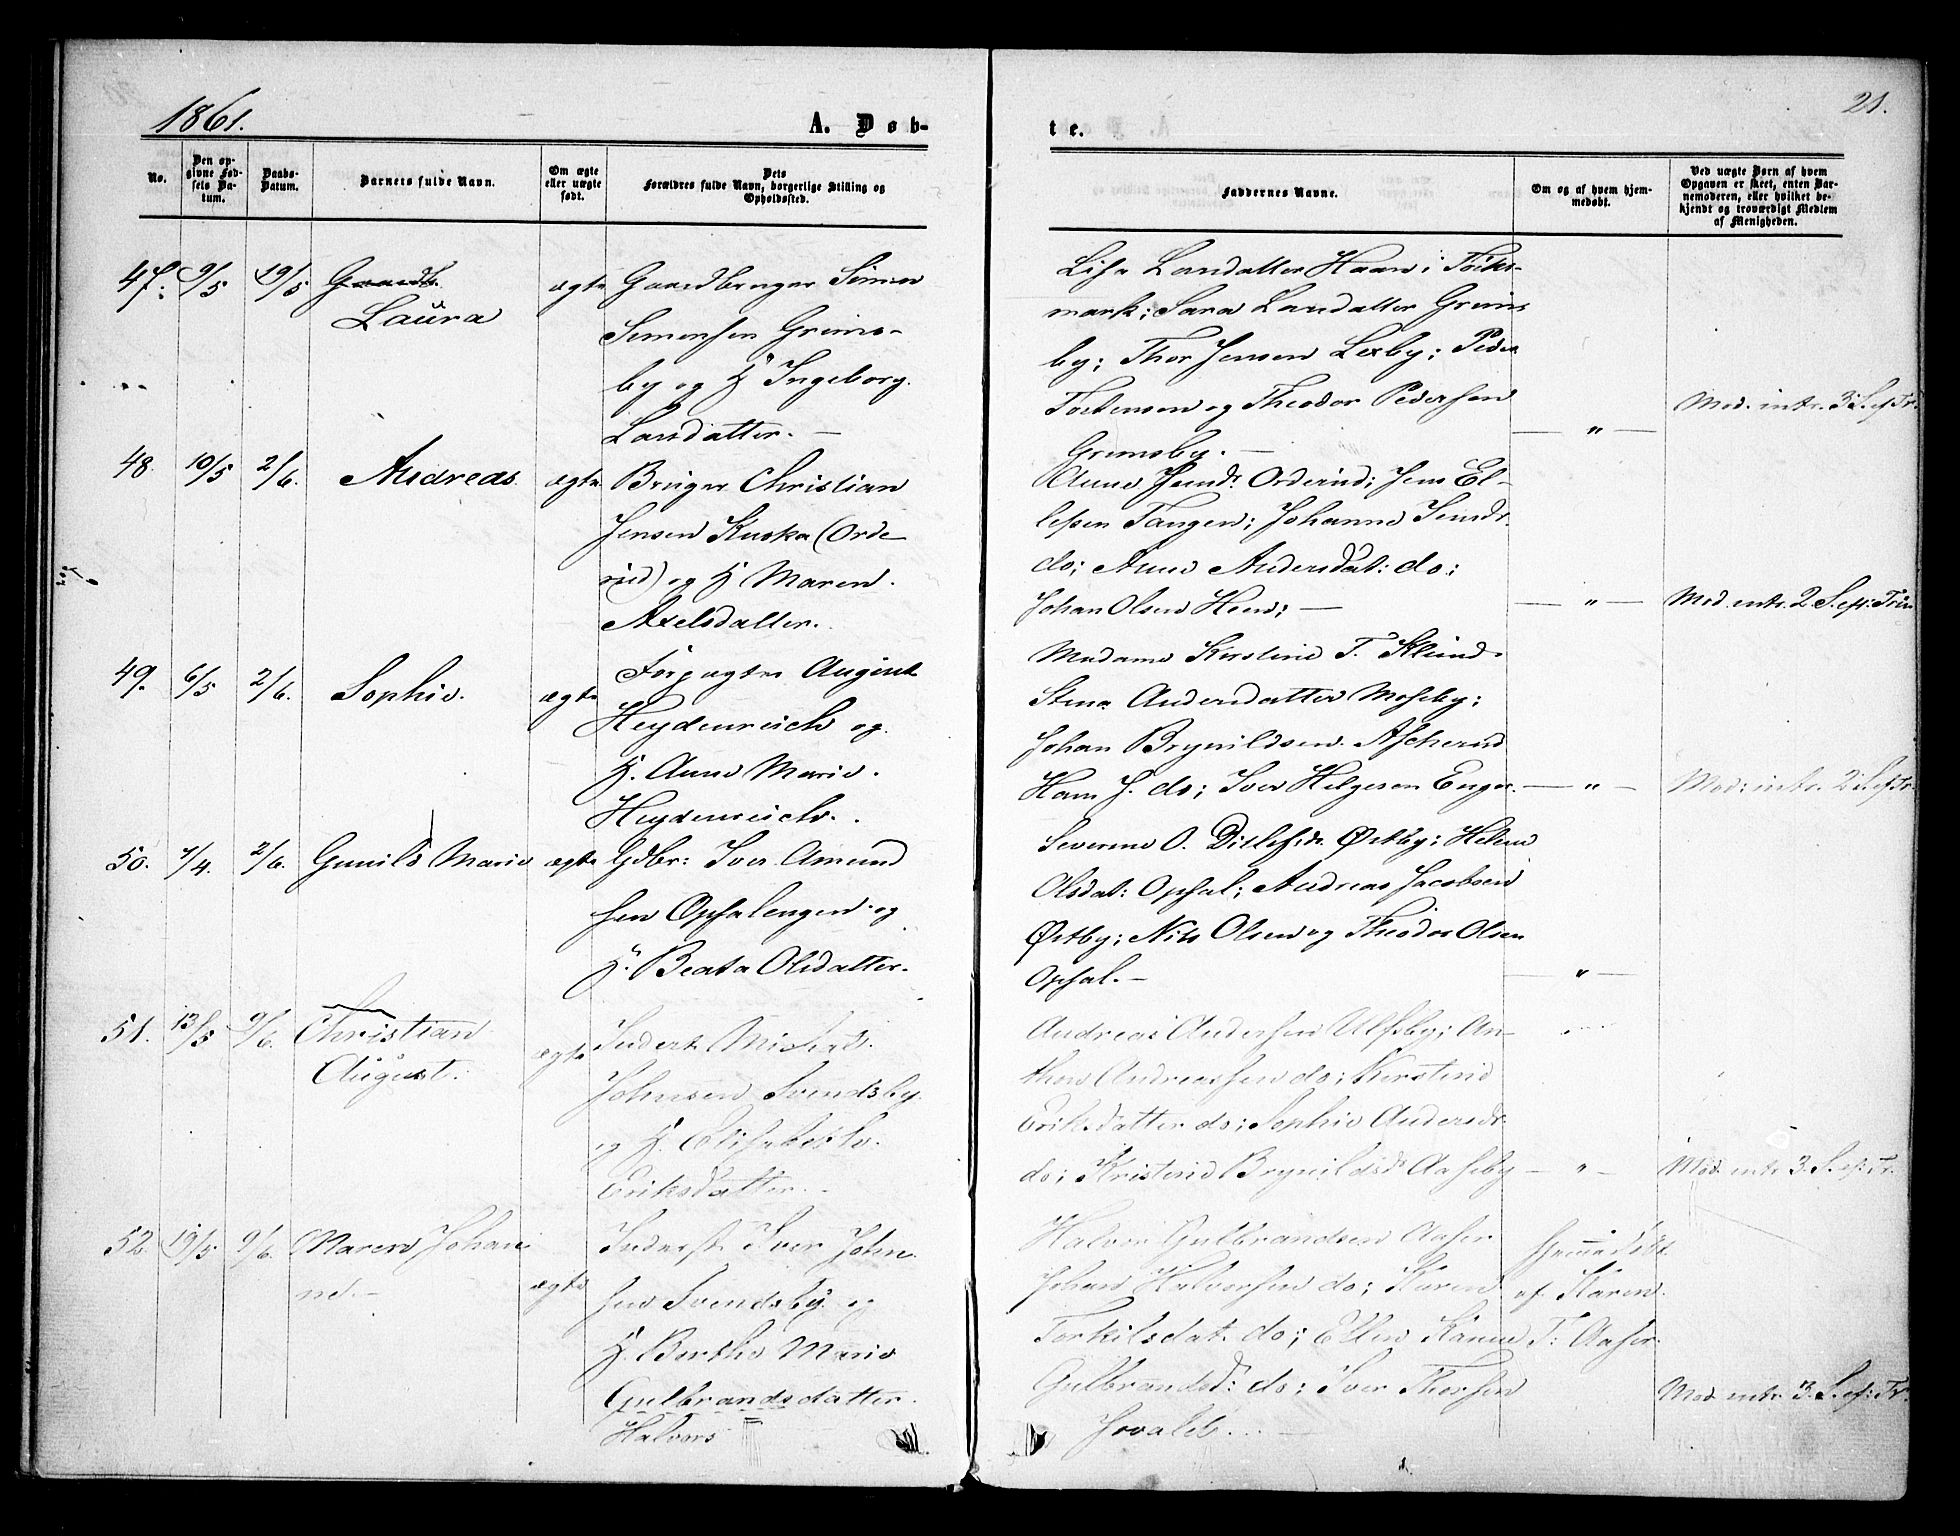 1861.
A. Døb-
No.
Den op-
givne Fød-
sels Da-
tum.
Daabs-
Datum.
Barnets fulde Navn.
Om ægte
eller uægte
født.
Dets
Forældres fulde Navn, borgerlige Stilling og
Opholdssted.
47. 9/5 19/5
Laura
ægte
Gaardbruger Simen
Simensen Grims-
by og H Ingeborg
Larsdatter. —
48. 10/5 2/6. Andreas. ægte
Bruger Christian
Jensen Kuska (Orde-
rud) og H Maren
Axelsdatter.
49. 6/5 2/6. Sophie. ægte
Forpagter August
Heydenreich og
H. Anne Marie
Heydenreich.
50. 7/4. 2/6. Gunild Marie ægte
Gdbr: Iver Amund
sen Opsalengen og
H. Beata Olsdatter.
51. 13/5 9/6. Christian
August.
ægte
Inderst Michael
Johnsen Svendsby
og H. Elisabeth
Eriksdatter.
52. 19/5 9/6. Maren Johan
ne. —
ægte
Inderst Iver John
sen Svendsby og
H. Berthe Marie
Gulbrandsdatter.
Halvors
21.
te.
Faddernes Navne.
Om og af hvem hjem-
medøbt.
Ved uægte Børn af hvem
Opgaven er skeet, enten Bar-
nemoderen, eller hvilket be-
kjendt og troværdigt Medlem
af Menigheden.
Lisa Larsdatter Haan i
mark; Sara Larsdatter Grims
by; Thor Jensen Lexby; Peder
Torstensen og Theodor Pedersen
Grimsby. —
— " —
Mod. intr. 3 S. ef Tr.
Anne Jensd. Orderud; Jens El-
lefsen Tangen; Johanne Jensdr.
do; Anne Andersdat: do;
Johan Olsen Heen; —
— " —
Mod. intr. 2 S. eft: Trin
Madame Kirstine T. Klund
Stina Andersdatter Moseby;
Johan Brynildsen Ascherud
Hans J. do; Iver Helgesen Enger.
— " —
Mod: intr. 2 S. ef Tr.
Severine O. Ditlefsdr. Østby; Helene
Olsdat: Opsal; Andreas Jacobsen
Østby; Nils Olsen og Theodor Olsen
Opsal. —
— " —
Andreas Andersen Ulfsby; An-
thon Andreassen do; Kirstine
Eriksdatter do; Sophie Andersdr.
do; Kristine Brynildsd. Aaseby
— " —
Mod. intr 3. S. ef: Tr.
Halvor Gulbrandsen Aaser
Johan Halvorsen do; Karen
Torkilsdat. do; Ellen Karine
Gulbrandsd: do; Iver Thorsen
Hjemmedøbt
af Karen
T: Aaser.
Mod. intr. 3. S. ef: Tr.